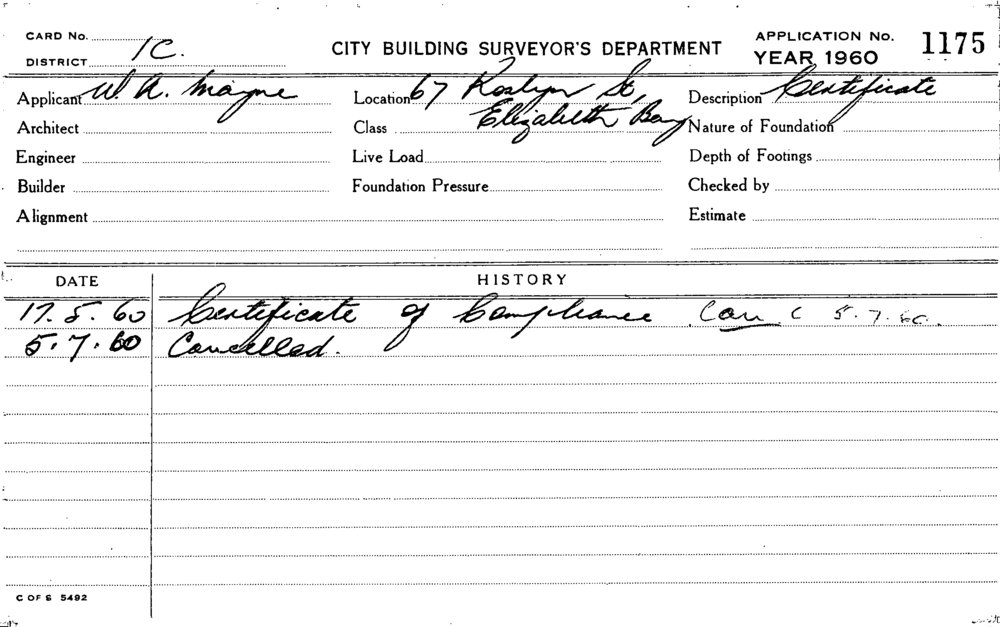 CARD No.
DISTRICT 1C.
CITY BUILDING SURVEYOR'S DEPARTMENT
APPLICATION No. 1175
YEAR 1960
Applicant W. A. Mayne Location 67 Roslyn St, Description Certificate
Elizabeth Bay
Architect Class Nature of Foundation
Engineer Live Load Depth of Footings
Builder Foundation Pressure Checked by
Alignment Estimate
DATE HISTORY
17. 5. 60 Certificate of Compliance Can C 5. 7. 60.
5. 7. 60 Cancelled.
C OF S 5492